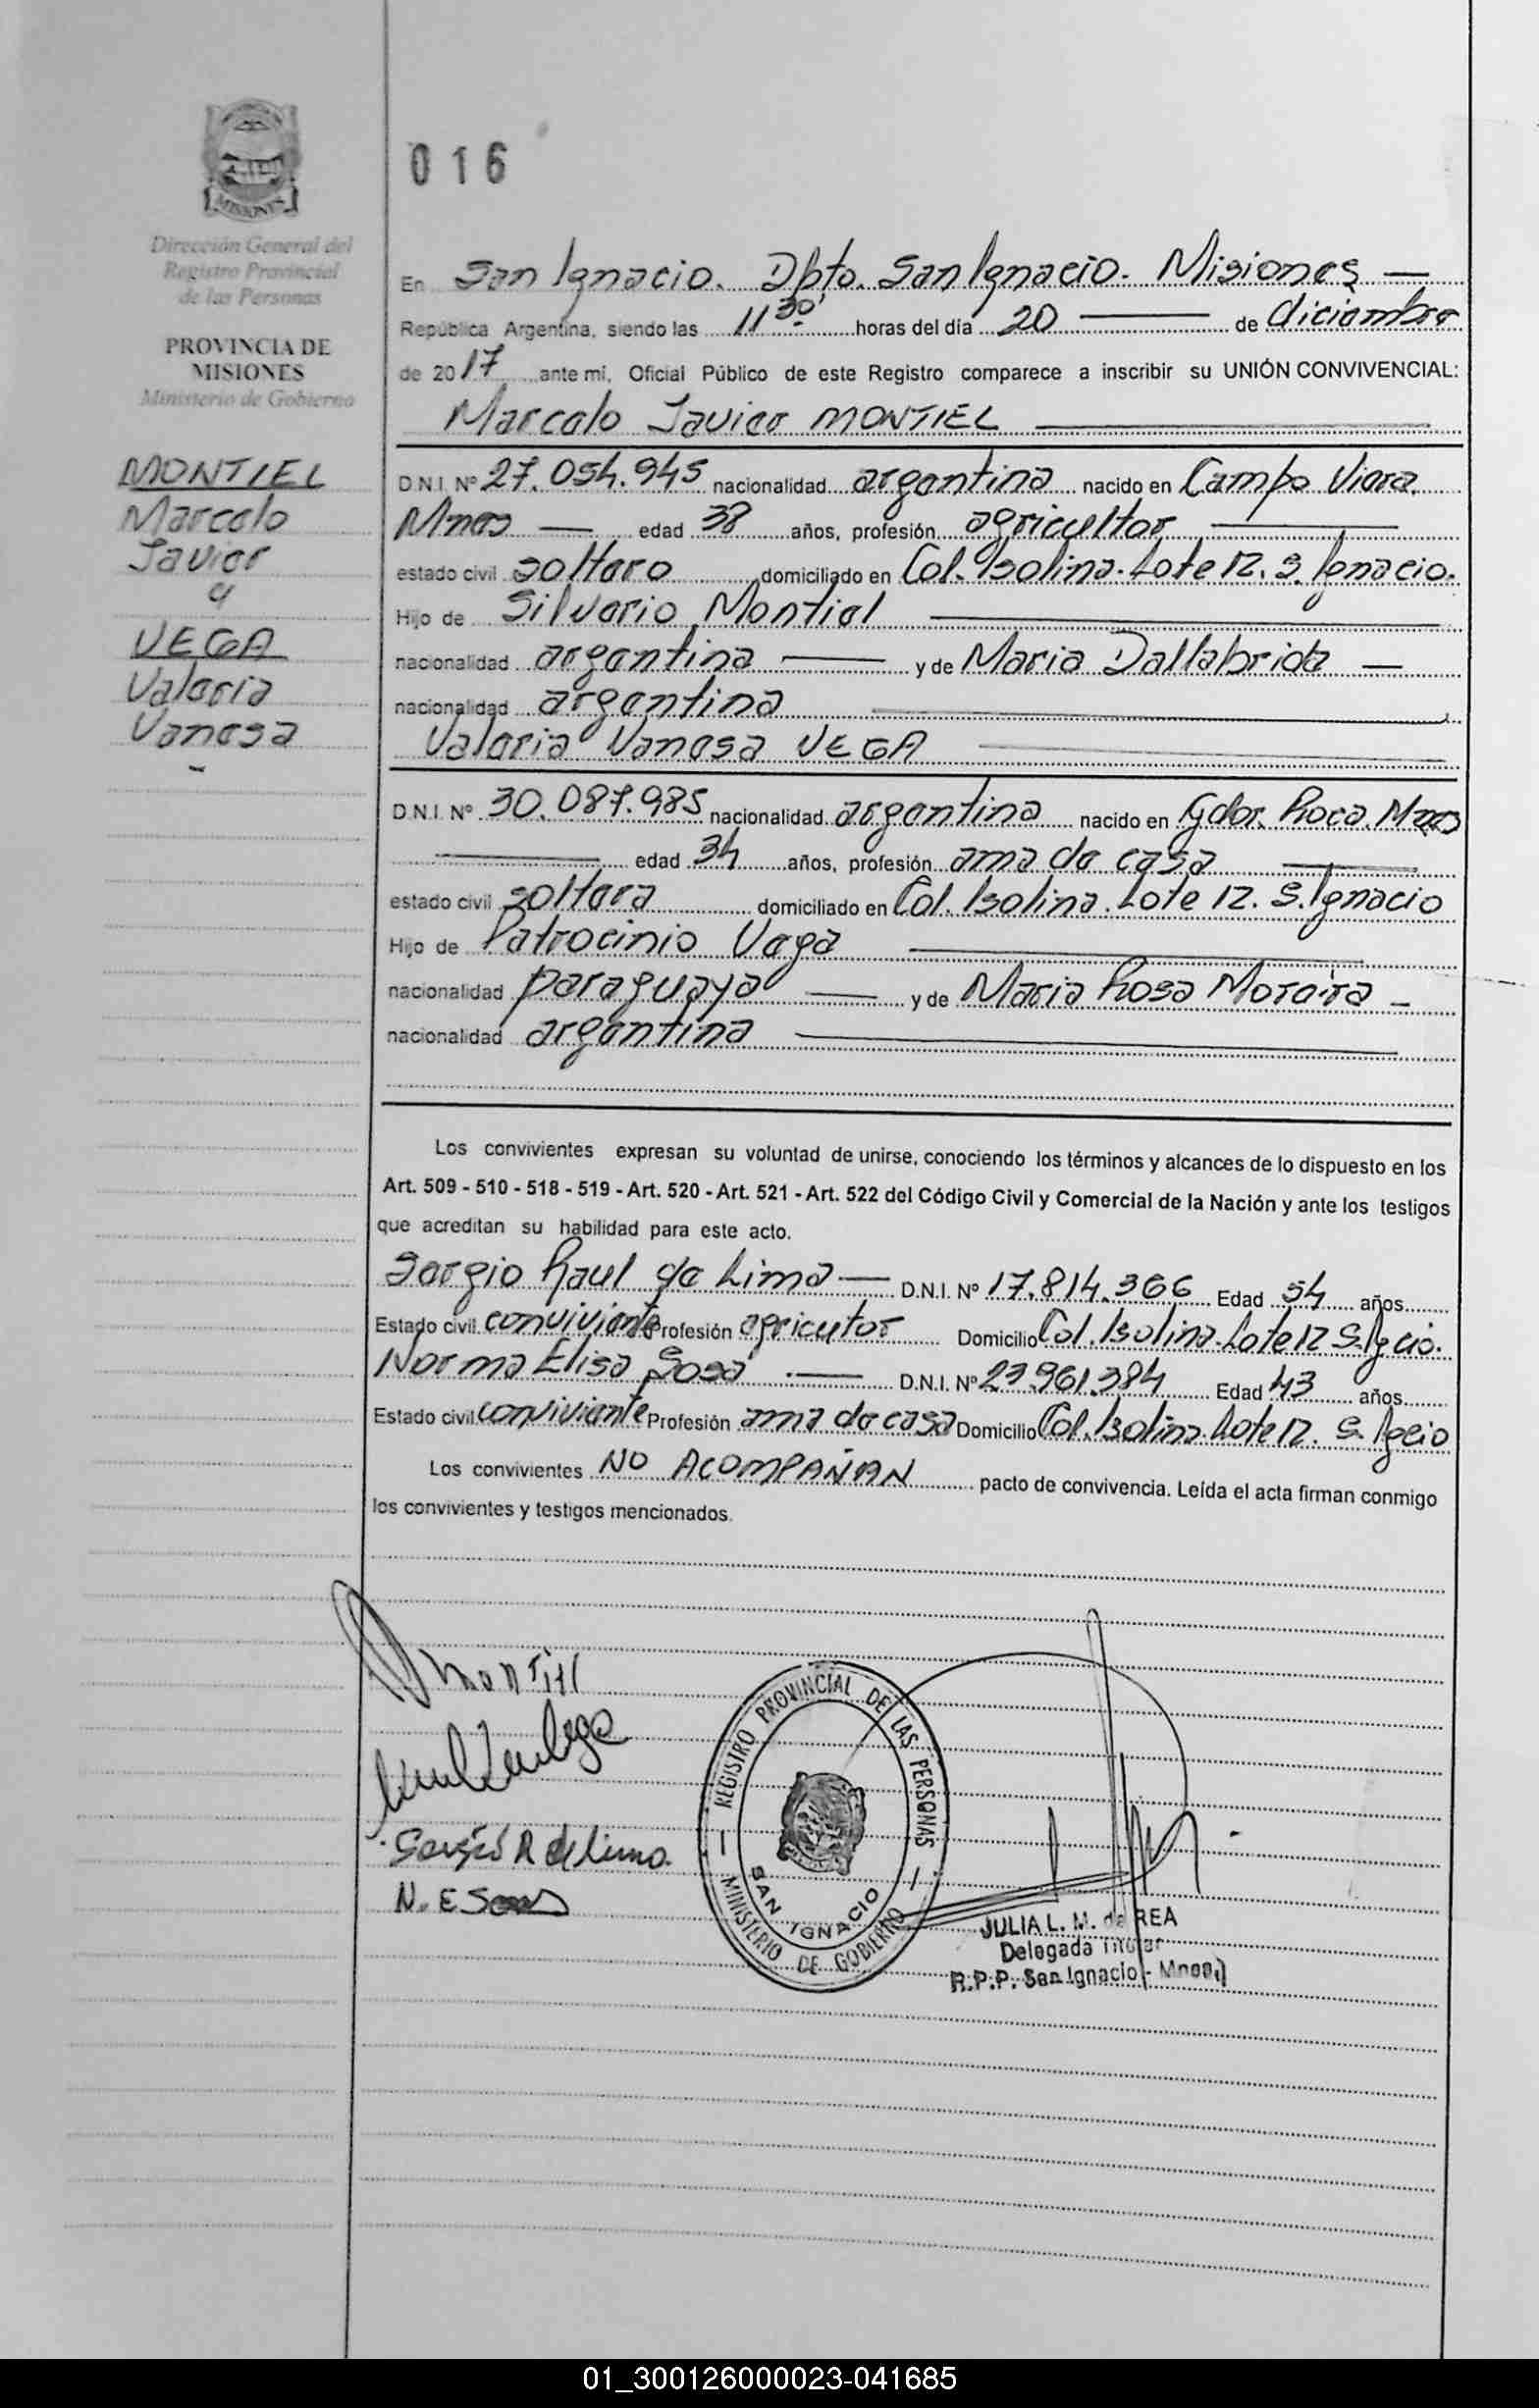 016
MISIONES
Dirección General del
Registro Provincial
de las Personas
PROVINCIA DE
MISIONES
Ministerio de Gobierno
MONTIEL
Marcelo
Javier
y
VEGA
Valeria
Vanesa
En San Ignacio. Dpto. San Ignacio. Misiones
República Argentina, siendo las 11 30' horas del día 20 de diciembre
de 2017 ante mí, Oficial Público de este Registro comparece a inscribir su UNIÓN CONVIVENCIAL:
Marcelo Javier MONTIEL
D.N.I. Nº 27.054.945 nacionalidad argentina nacido en Campo Viera.
Mnes edad 38 años, profesión agricultor
estado civil soltero domiciliado en Col. Isolina. Lote 12. S. Ignacio.
Hijo de Silverio Montiel
nacionalidad argentina y de Maria Dallabrida
nacionalidad argentina
Valeria Vanesa VEGA
D.N.I. Nº 30.087.985 nacionalidad argentina nacido en Gdor. Roca. Mnes
edad 34 años, profesión ama de casa
estado civil soltera domiciliado en Col. Isolina. Lote 12. S. Ignacio
Hijo de Patrocinio Vega
nacionalidad paraguaya y de Maria Rosa Moreira
nacionalidad argentina
Los convivientes expresan su voluntad de unirse, conociendo los términos y alcances de lo dispuesto en los
Art. 509 - 510 - 518 - 519 - Art. 520 - Art. 521 - Art. 522 del Código Civil y Comercial de la Nación y ante los testigos
que acreditan su habilidad para este acto.
Sergio Raul de Lima D.N.I. Nº 17.814.366 Edad 54 años
Estado civil conviviente Profesión agricutor Domicilio Col. Isolina. Lote 12 S. Igcio.
Norma Elisa Sosa D.N.I. Nº 23.961.384 Edad 43 años
Estado civil conviviente Profesión ama de casa Domicilio Col. Isolina. Lote 12. S. Igcio
Los convivientes NO ACOMPAÑAN pacto de convivencia. Leída el acta firman conmigo
los convivientes y testigos mencionados.
Montiel
Sergio R de lima
N. E Sosa
REGISTRO PROVINCIAL DE LAS PERSONAS
SAN IGNACIO
MINISTERIO DE GOBIERNO
JULIA L. M. de REA
Delegada Titular
R.P.P. San Ignacio - Mnes
01_300126000023-041685